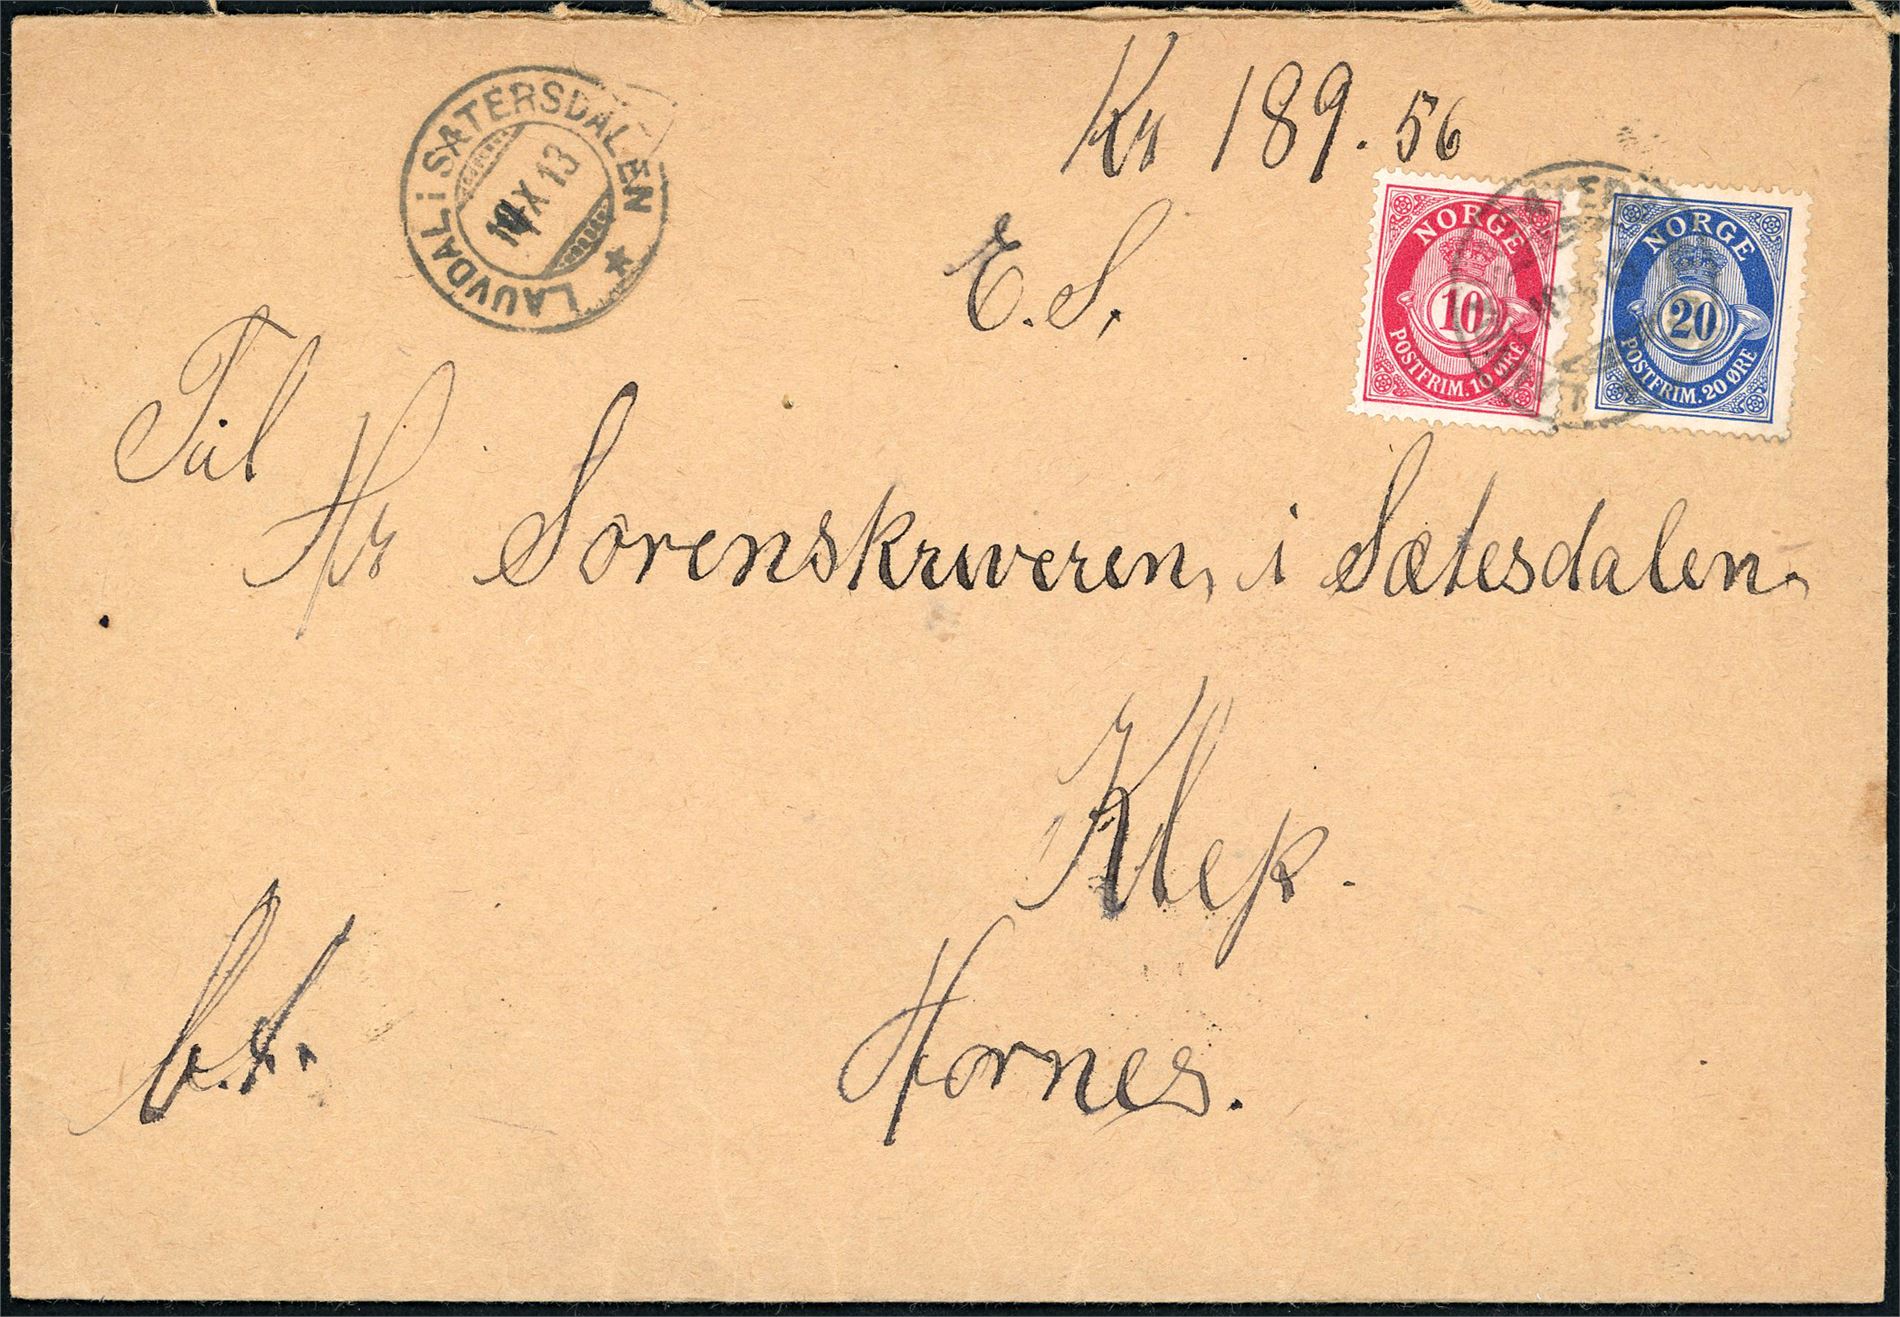 LAUVDAL i SÆTERSDALEN
X 13
Kr 189.56
E. S.
NORGE
10
POSTFRIM. 10 ØRE
NORGE
20
POSTFRIM. 20 ØRE
Til
Hr Sorenskriveren, i Sætesdalen.
Klep.
Hornes.